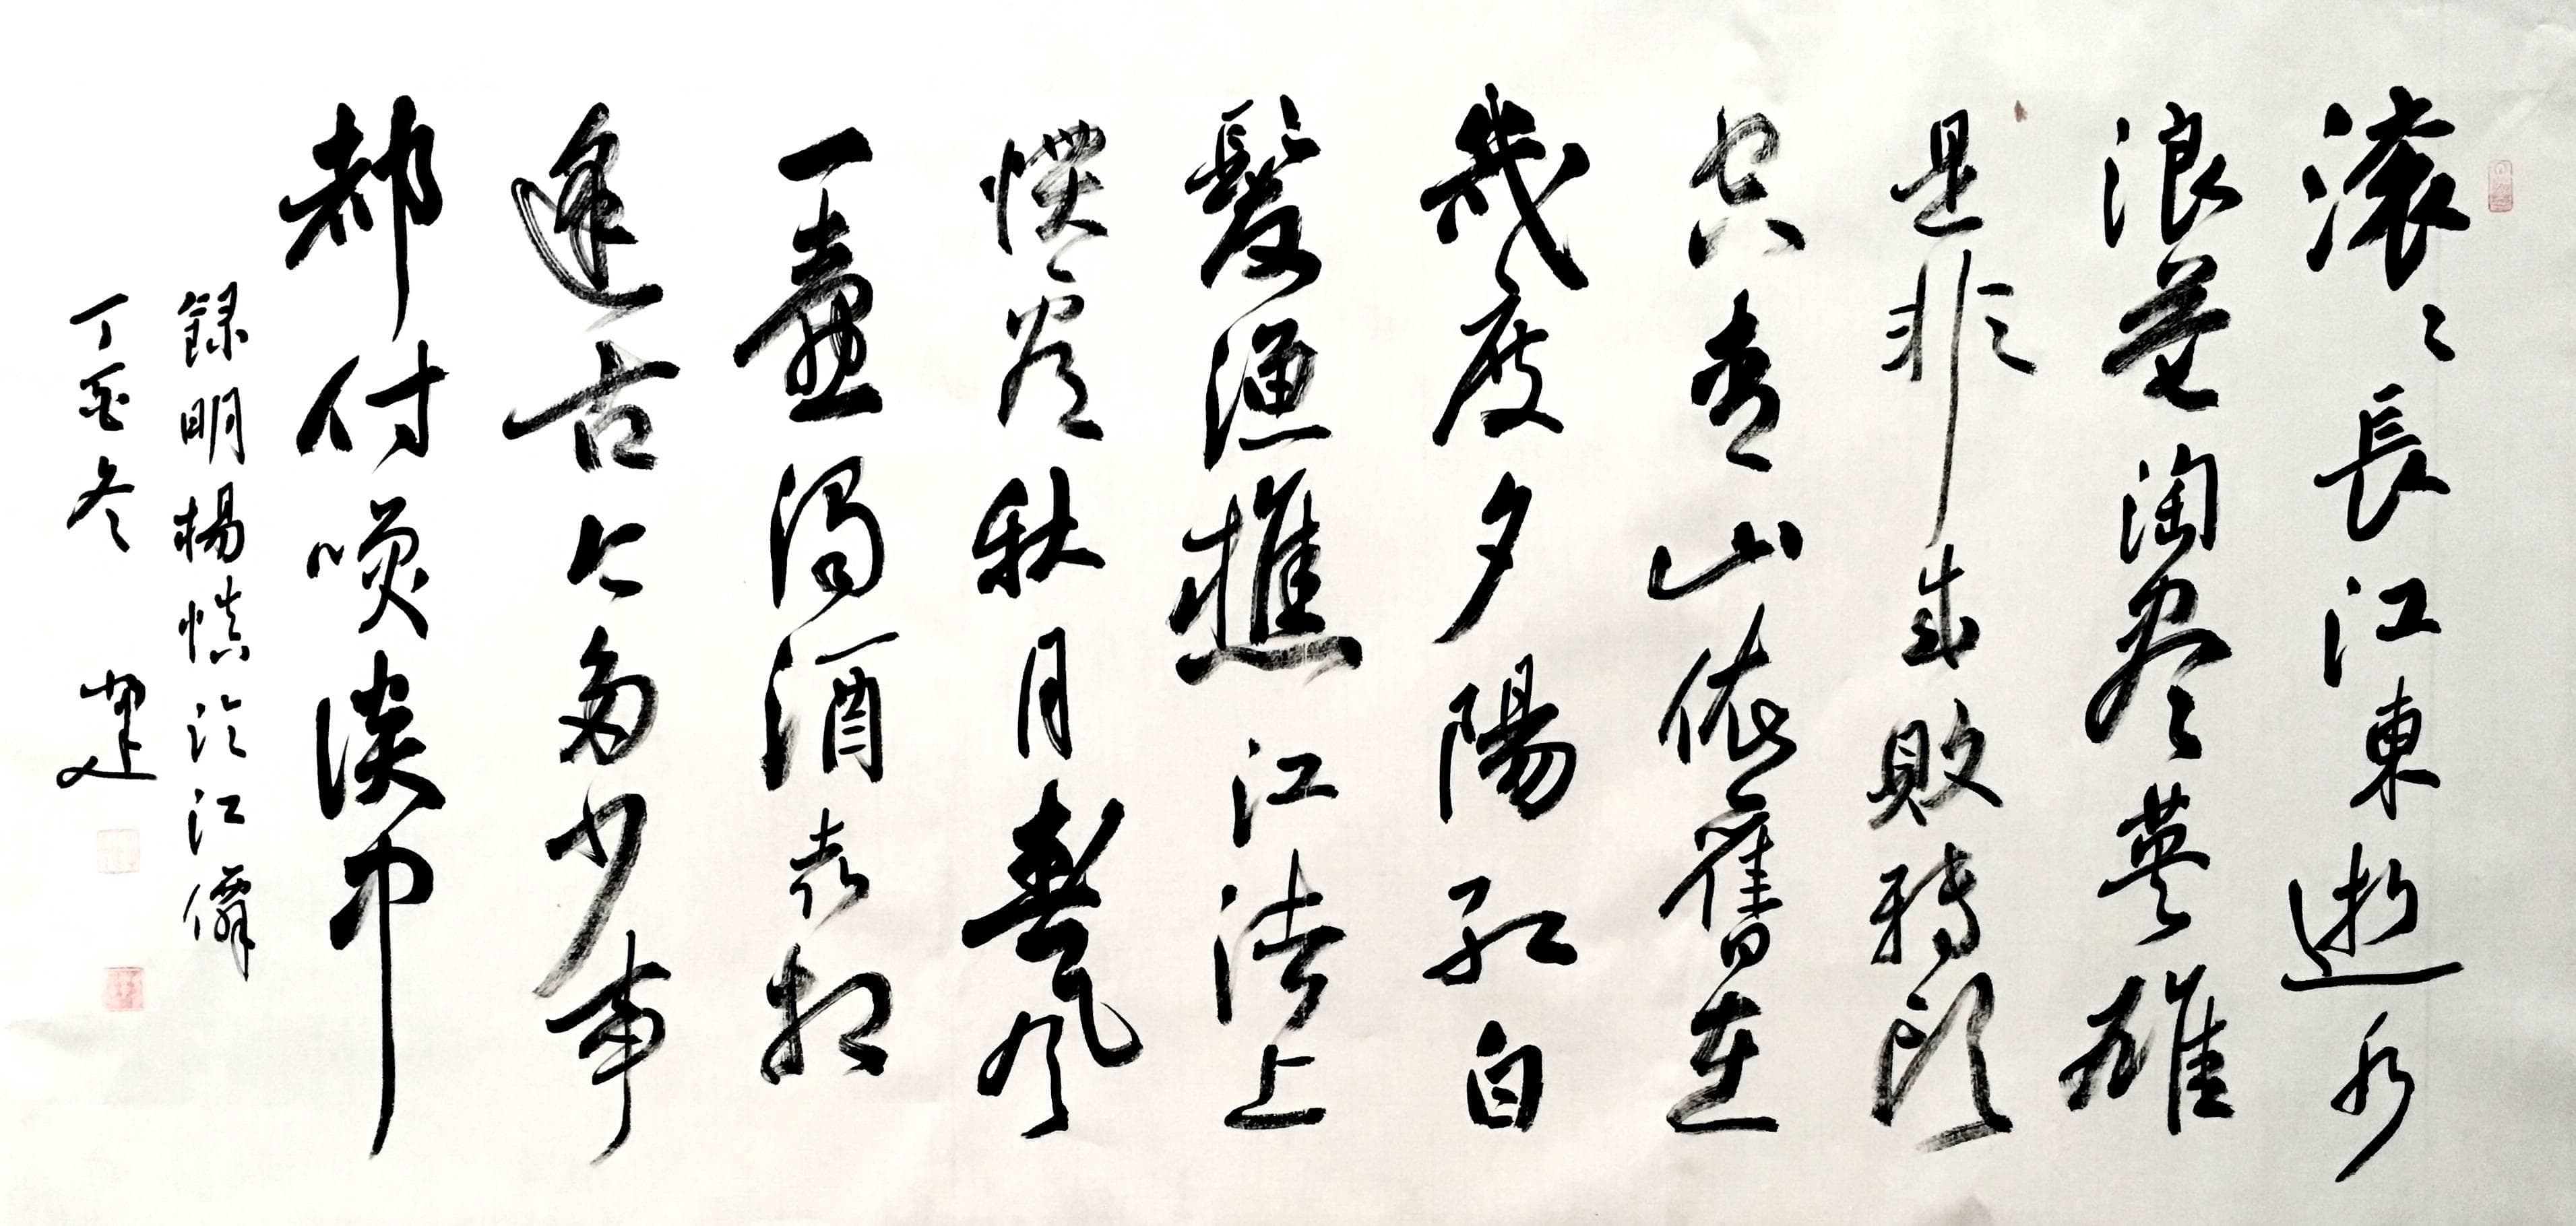 滚〻長江東逝水
浪花淘尽英雄
是非成敗轉頭
空青山依舊在
幾度夕陽紅白
髮漁樵江渚上
慣看秋月春風
一壺濁酒喜相
逢古今多少事
都付咲談中
録明楊慎臨江僊
丁酉冬 建